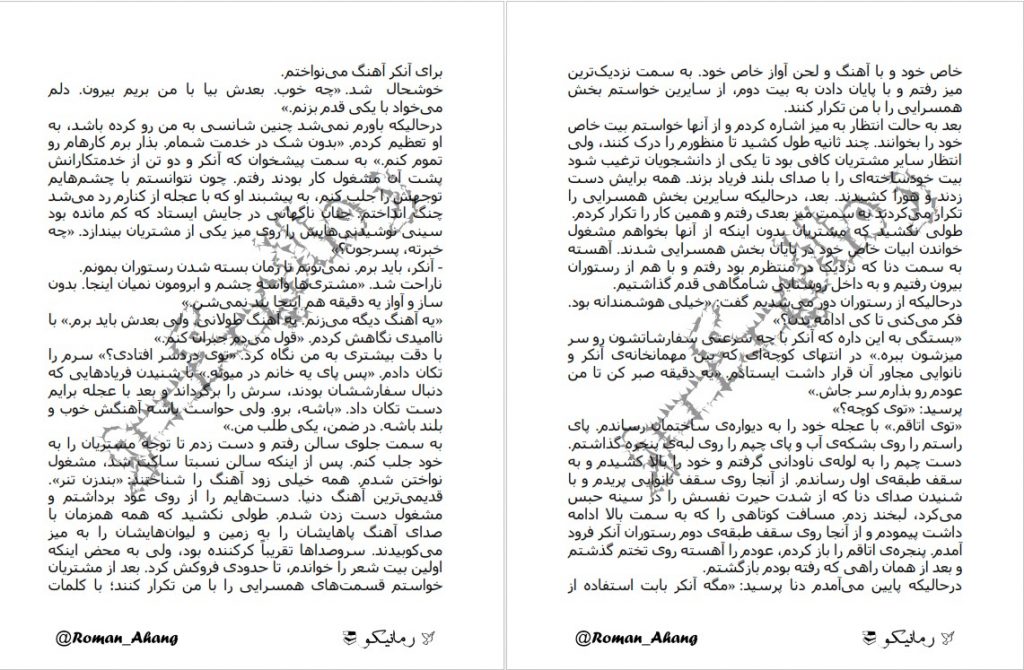 برای آنکر آهنگ می‌نواختم.
خوشحال شد. «چه خوب. بعدش بیا با من بریم بیرون. دلم
می‌خواد با یکی قدم بزنم.»
درحالیکه باورم نمی‌شد چنین شانسی به من رو کرده باشد، به
او تعظیم کردم. «بدون شک در خدمت شمام. بذار برم کارهام رو
تموم کنم.» به سمت پیشخوان که آنکر و دو تن از خدمتکارانش
پشت آن مشغول کار بودند رفتم. چون نتوانستم با چشم‌هایم
توجهش را جلب کنم، به پیشبند او که با عجله از کنارم رد می‌شد
چنگ انداختم. چنان ناگهانی در جایش ایستاد که کم مانده بود
سینی نوشیدنی‌هایش را روی میز یکی از مشتریان بیندازد. «چه
خبرته، پسرجون؟»
- آنکر، باید برم. نمی‌تونم تا زمان بسته شدن رستوران بمونم.
ناراحت شد. «مشتری‌ها واسه چشم و ابرومون نمیان اینجا. بدون
ساز و آواز یه دقیقه هم اینجا بند نمی‌شن.»
«یه آهنگ دیگه می‌زنم. یه آهنگ طولانی. ولی بعدش باید برم.» با
ناامیدی نگاهش کردم. «قول می‌دم جبران کنم.»
با دقت بیشتری به من نگاه کرد. «توی دردسر افتادی؟» سرم را
تکان دادم. «پس پای یه خانم در میونه.» با شنیدن فریادهایی که
دنبال سفارششان بودند، سرش را برگرداند و بعد با عجله برایم
دست تکان داد. «باشه، برو. ولی حواست باشه آهنگش خوب و
بلند باشه. در ضمن، یکی طلب من.»
به سمت جلوی سالن رفتم و دست زدم تا توجه مشتریان را به
خود جلب کنم. پس از اینکه سالن نسبتا ساکت شد، مشغول
نواختن شدم. همه خیلی زود آهنگ را شناختند: «بندزن تنر».
قدیمی‌ترین آهنگ دنیا. دست‌هایم را از روی عود برداشتم و
مشغول دست زدن شدم. طولی نکشید که همه همزمان با
صدای آهنگ پاهایشان را به زمین و لیوان‌هایشان را به میز
می‌کوبیدند. سروصداها تقریباً کرکننده بود، ولی به محض اینکه
اولین بیت شعر را خواندم، تا حدودی فروکش کرد. بعد از مشتریان
خواستم قسمت‌های همسرایی را با من تکرار کنند؛ با کلمات
رمانیکو
@Roman_Ahang
خاص خود و با آهنگ و لحن آواز خاص خود. به سمت نزدیک‌ترین
میز رفتم و با پایان دادن به بیت دوم، از سایرین خواستم بخش
همسرایی را با من تکرار کنند.
بعد به حالت انتظار به میز اشاره کردم و از آنها خواستم بیت خاص
خود را بخوانند. چند ثانیه طول کشید تا منظورم را درک کنند، ولی
انتظار سایر مشتریان کافی بود تا یکی از دانشجویان ترغیب شود
بیت خودساخته‌ای را با صدای بلند فریاد بزند. همه برایش دست
زدند و هورا کشیدند. بعد، درحالیکه سایرین بخش همسرایی را
تکرار می‌کردند به سمت میز بعدی رفتم و همین کار را تکرار کردم.
طولی نکشید که مشتریان بدون اینکه از آنها بخواهم مشغول
خواندن ابیات خاص خود در پایان بخش همسرایی شدند. آهسته
به سمت دنا که نزدیک در منتظرم بود رفتم و با هم از رستوران
بیرون رفتیم و به داخل روشنایی شامگاهی قدم گذاشتیم.
درحالیکه از رستوران دور می‌شدیم گفت: «خیلی هوشمندانه بود.
فکر می‌کنی تا کی ادامه بدن؟»
«بستگی به این داره که آنکر با چه سرعتی سفارشاتشون رو سر
میزشون ببره.» در انتهای کوچه‌ای که بین مهمانخانه‌ی آنکر و
نانوایی مجاور آن قرار داشت ایستادم. «یه دقیقه صبر کن تا من
عودم رو بذارم سر جاش.»
پرسید: «توی کوچه؟»
«توی اتاقم.» با عجله خود را به دیواره‌ی ساختمان رساندم. پای
راستم را روی بشکه‌ی آب و پای چپم را روی لبه‌ی پنجره گذاشتم.
دست چپم را به لوله‌ی ناودانی گرفتم و خود را بالا کشیدم و به
سقف طبقه‌ی اول رساندم. از آنجا روی سقف نانوایی پریدم و با
شنیدن صدای دنا که از شدت حیرت نفسش را در سینه حبس
می‌کرد، لبخند زدم. مسافت کوتاهی را که به سمت بالا ادامه
داشت پیمودم و از آنجا روی سقف طبقه‌ی دوم رستوران آنکر فرود
آمدم. پنجره‌ی اتاقم را باز کردم، عودم را آهسته روی تختم گذاشتم
و بعد از همان راهی که رفته بودم بازگشتم.
درحالیکه پایین می‌آمدم دنا پرسید: «مگه آنکر بابت استفاده از
رمانیکو
@Roman_Ahang